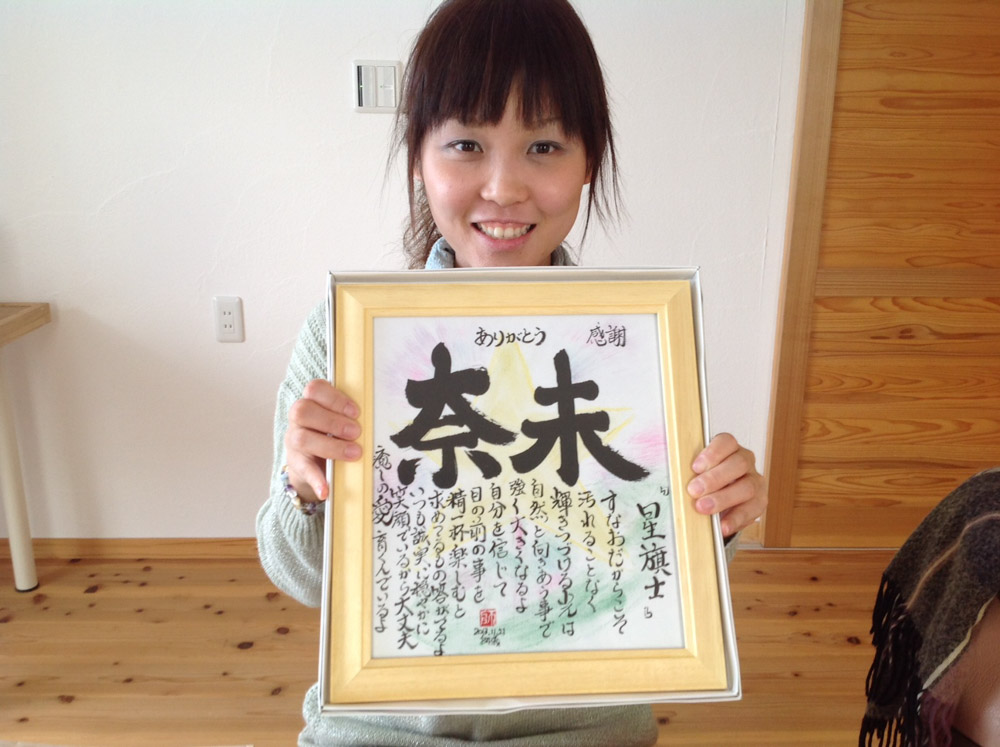 ありがとう 感謝
奈未
〝星旗士〟
すなおだからこそ
汚れることなく
輝きつづける光は
自然と向きあう事で
強く大きくなるよ
自分を信じて
目の前の事を
精一杯楽しむと
求めてるもの がでるよ
いつも誠実に穏やかに
笑顔でいるから大丈夫
癒しの愛育んでいるよ
師
11.21